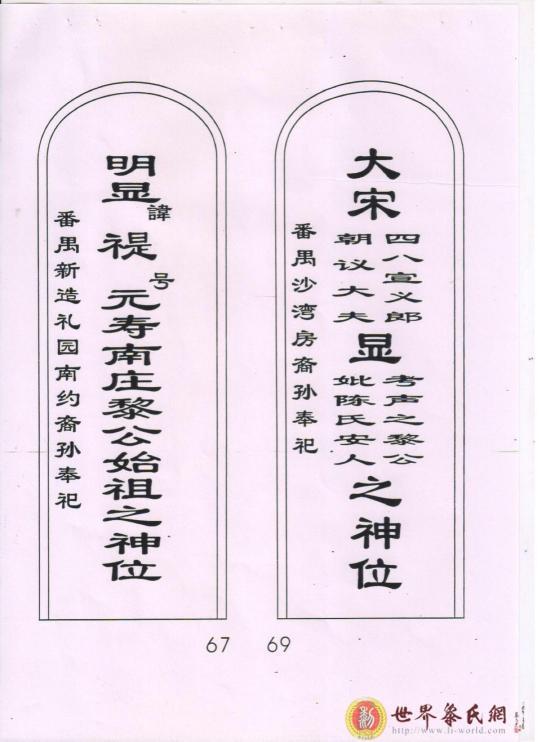 大宋
四八宣义郎
朝议大夫
显
考声之黎公
妣陈氏安人
之神位
番禺沙湾房裔孙奉祀
69
明显諱禔号元寿南庄黎公始祖之神位
番禺新造礼园南约裔孙奉祀
67
世界黎氏網
http://www.li-world.com